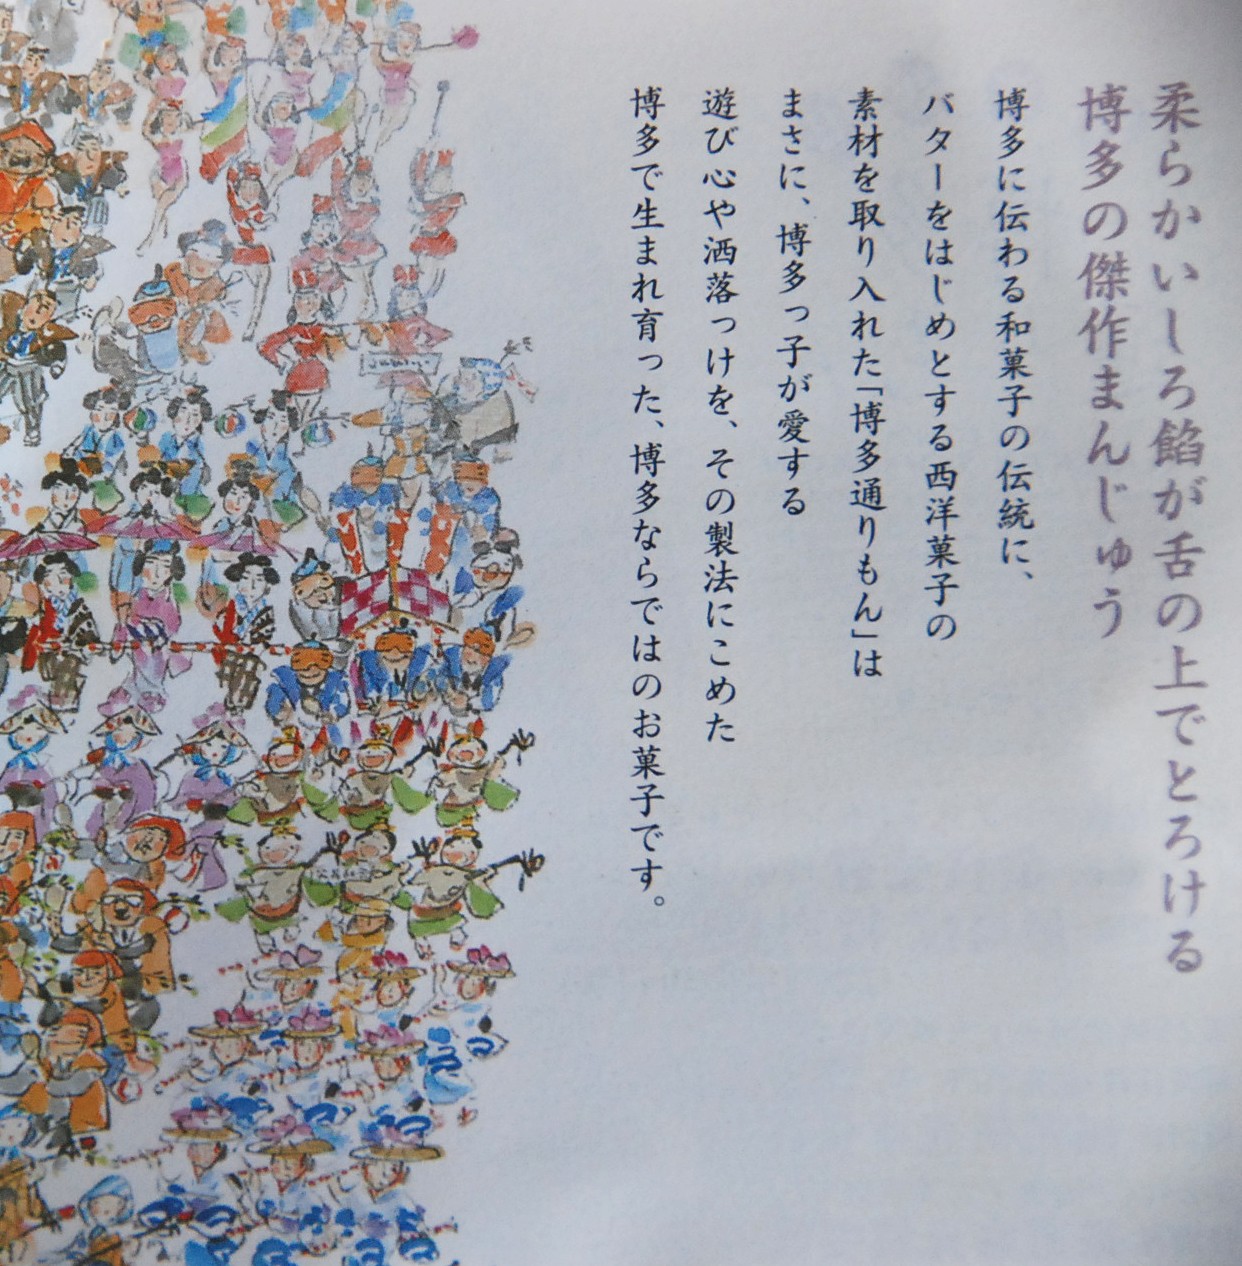 柔らかいしろ餡が舌の上でとろける
博多の傑作まんじゅう
博多に伝わる和菓子の伝統に、
バターをはじめとする西洋菓子の
素材を取り入れた「博多通りもん」は
まさに、博多っ子が愛する
遊び心や洒落っけを、その製法にこめた
博多で生まれ育った、博多ならではのお菓子です。